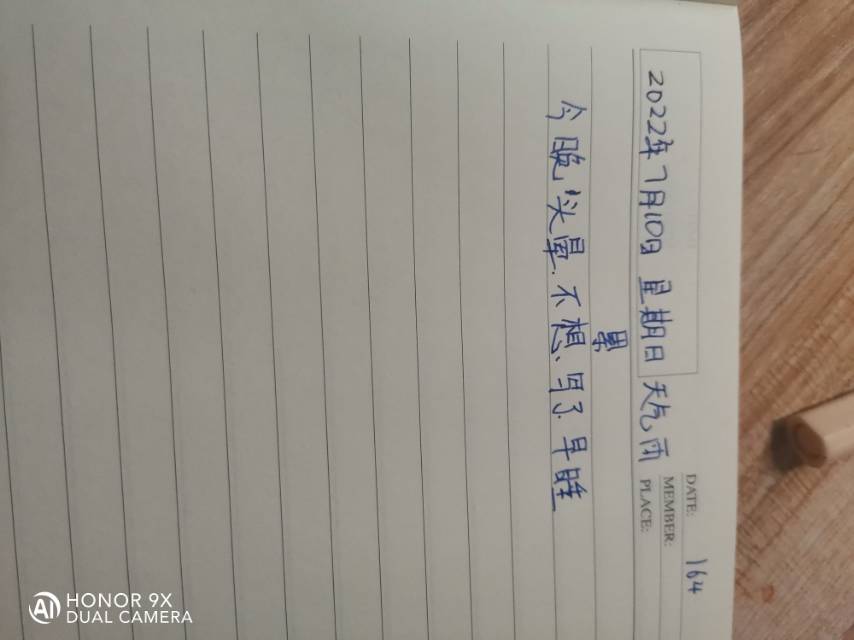 DATE: 164
MEMBER:
PLACE:
2022年7月10日 星期日 天气雨
累
今晚头晕.不想、写了.早睡
HONOR 9X
DUAL CAMERA